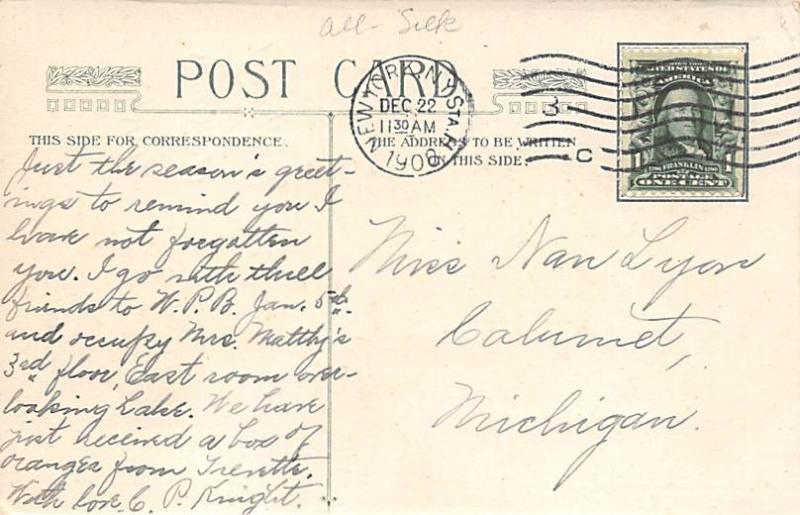 all- Silk
POST CARD
NEW YORK, N.Y. STA. H
DEC 22
11 30 AM
1908
3
C
UNITED STATES OF
AMERICA
FRANKLIN
POSTAGE
ONE CENT
THIS SIDE FOR CORRESPONDENCE.
THE ADDRESS TO BE WRITTEN
ON THIS SIDE.
Just the season's greet-
ings to remind you I
have not forgotten
you. I go with three
friends to W. P. B. Jan. 5th.
and occupy Mrs. Matthy's
3rd floor, East room over-
looking Lake. We have
just received a box of
oranges from
With love, C. P. Knight.
Miss Nan Lyon
Calumet,
Michigan.